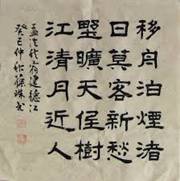 移舟泊煙渚
日莫客新愁
埜曠天低樹
江清月近人
孟浩然宿建德江
癸巳仲秋